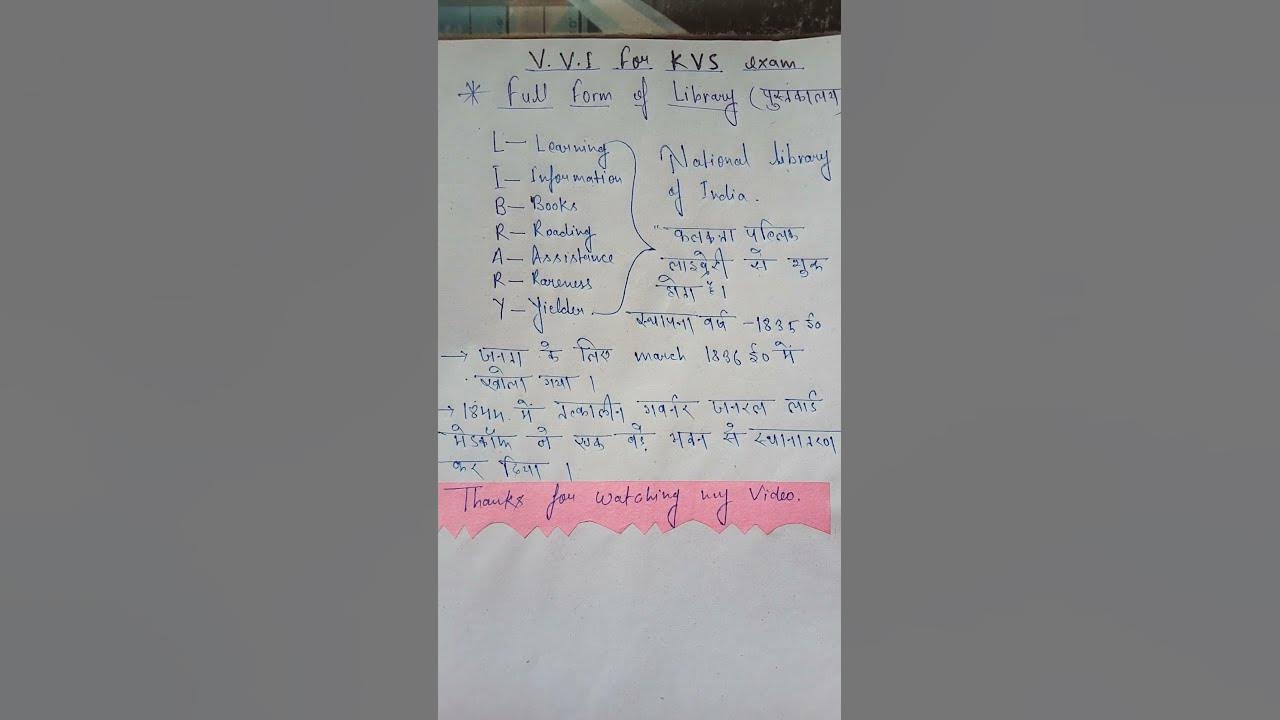 V.V.I for KVS exam
* Full Form of Library (पुस्तकालय)
L — Learning
I — Information
B — Books
R — Reading
A — Assistance
R — Rareness
Y — Yielder
National library
of India.
"कलकत्ता पब्लिक
लाइब्रेरी से शुरू
होता है।
स्थापना वर्ष - 1835 ई०
→ जनता के लिए march 1836 ई० में
खोला गया।
→ 1844 में तत्कालीन गवर्नर जनरल लार्ड
मेटकॉफ ने एक बड़े भवन से स्थानांतरण
कर दिया।
Thanks for watching my Video.